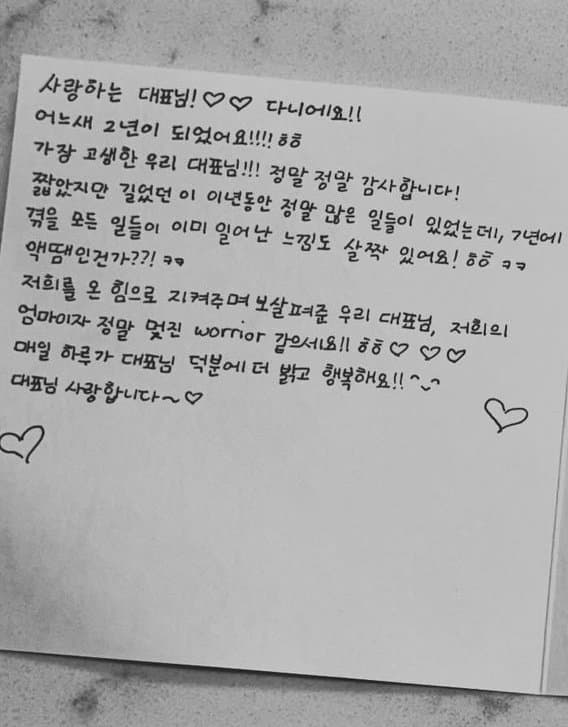 사랑하는 대표님!♡♡ 다니에요!!
어느새 2년이 되었어요!!!! ㅎㅎ
가장 고생한 우리 대표님!!! 정말 정말 감사합니다!
짧았지만 길었던 이 이년동안 정말 많은 일들이 있었는데, 7년에
겪을 모든 일들이 이미 일어난 느낌도 살짝 있어요! ㅎㅎ ㅋㅋ
액땜인건가??! ㅋㅋ
저희를 온 힘으로 지켜주며 보살펴준 우리 대표님, 저희의
엄마이자 정말 멋진 worrior 같으세요!! ㅎㅎ♡ ♡ ♡
매일 하루가 대표님 덕분에 더 밝고 행복해요!! ^~^
대표님 사랑합니다~♡